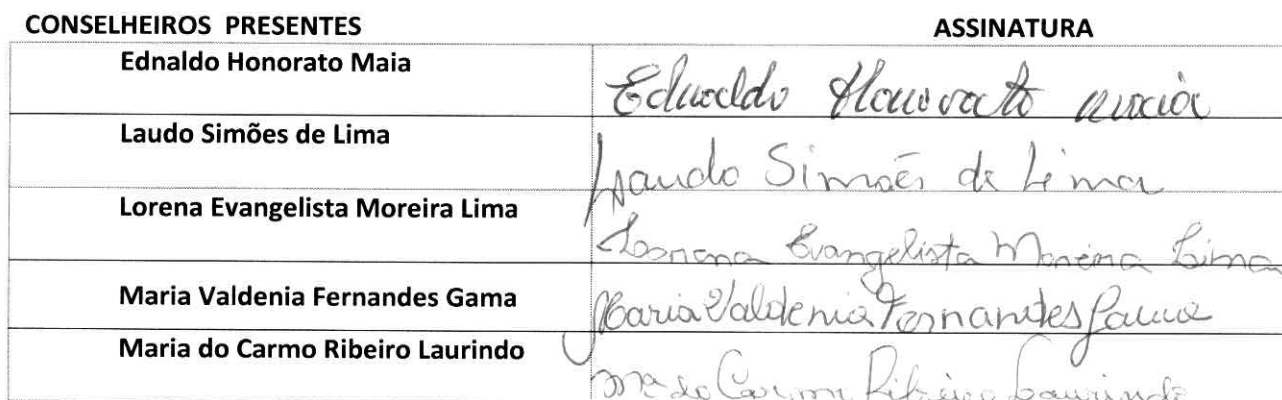 CONSELHEIROS PRESENTES ASSINATURA
Ednaldo Honorato Maia Ednaldo Honorato maia
Laudo Simões de Lima Laudo Simões de Lima
Lorena Evangelista Moreira Lima Lorena Evangelista Moreira Lima
Maria Valdenia Fernandes Gama Maria Valdenia Fernandes Gama
Maria do Carmo Ribeiro Laurindo Mª do Carmo Ribeiro Laurindo